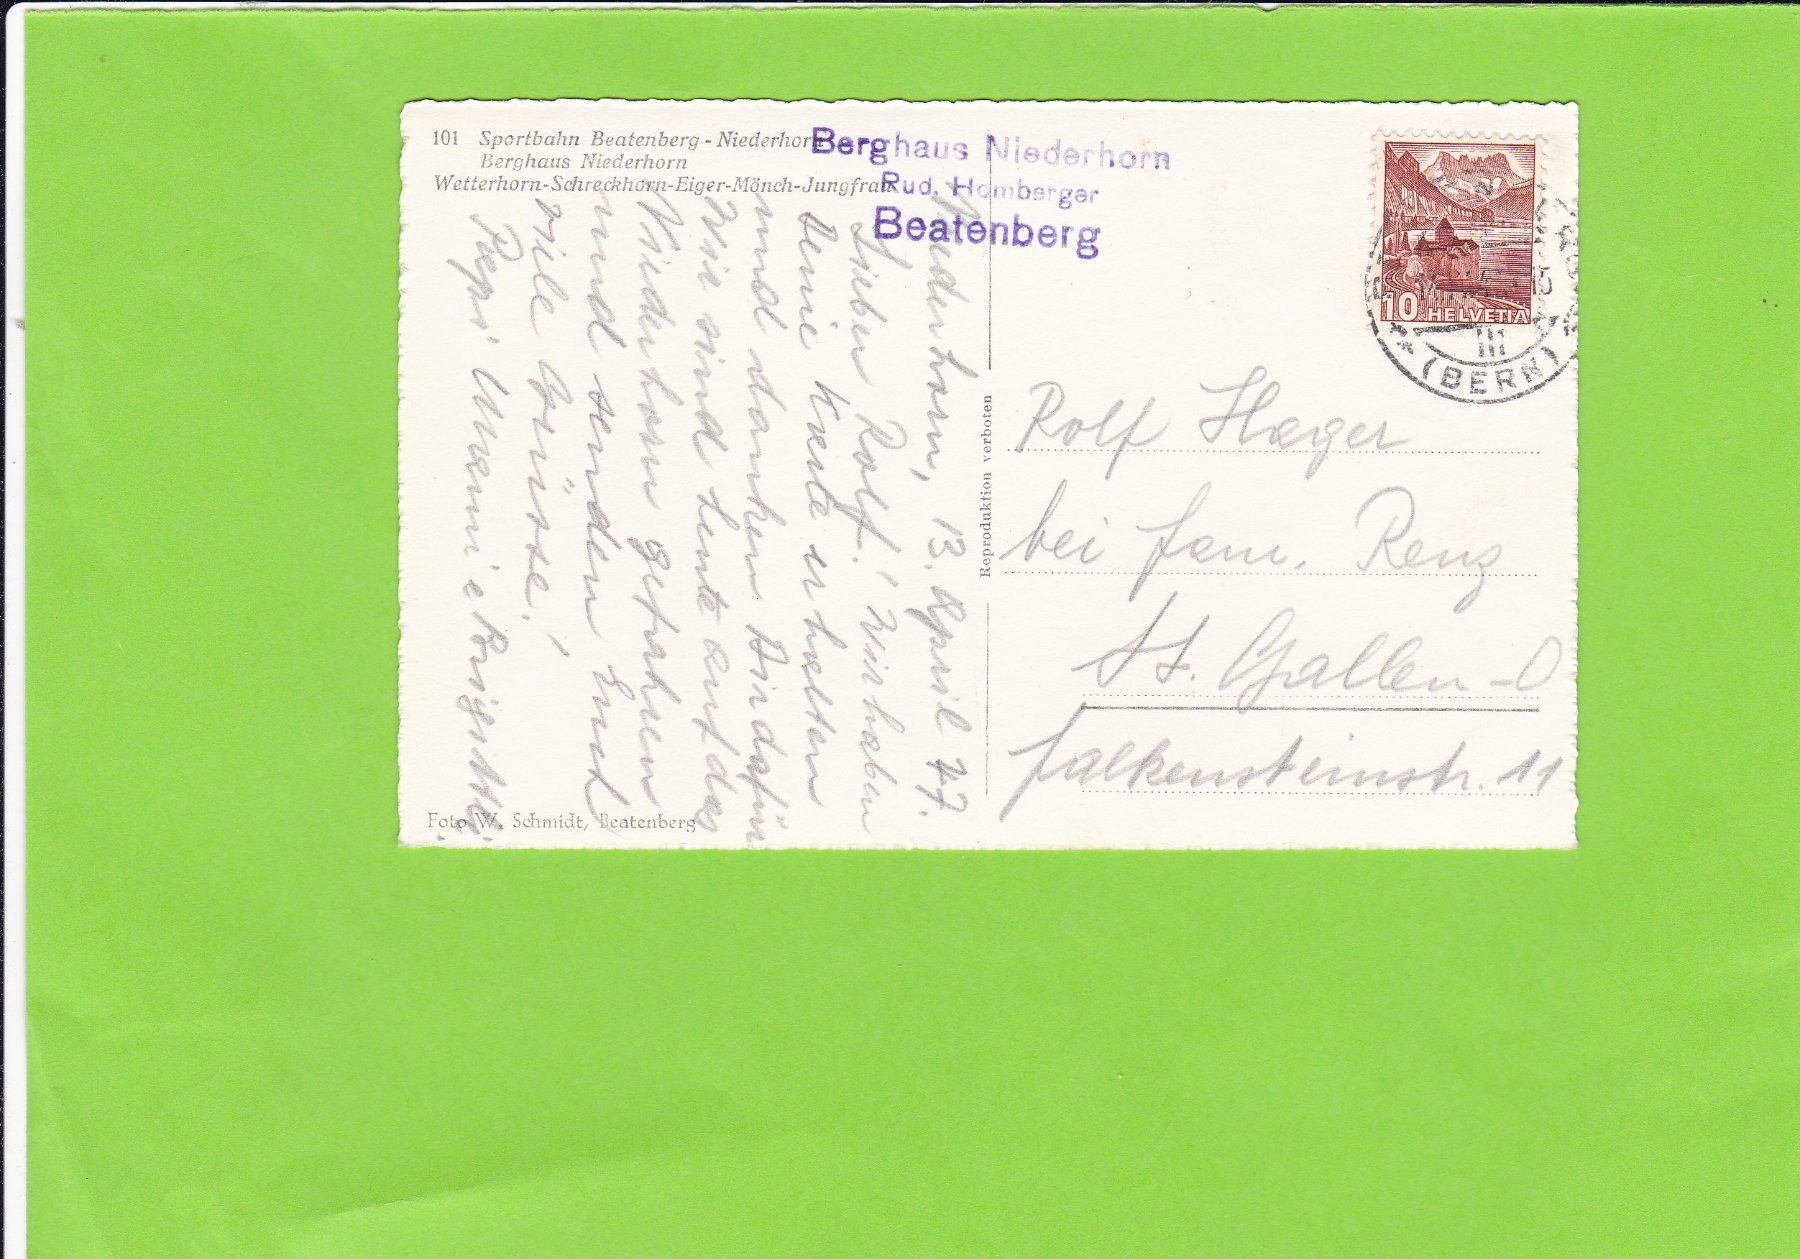 101 Sportbahn Beatenberg - Niederhorn
Berghaus Niederhorn
Wetterhorn-Schreckhorn-Eiger-Mönch-Jungfrau
Berghaus Niederhorn
Rud. Homberger
Beatenberg
Niederhorn, 13. April 47.
Lieber Rolf! Wir haben
Deine Karte erhalten
und danken Dir dafür
Wir sind heute auf das
Niederhorn gefahren
und senden Euch
viele Grüsse!
Papi Mami & Brigitte
Foto W. Schmidt, Beatenberg
Reproduktion verboten
10 HELVETIA
III
(BERN)
Rolf Hager
bei Fam. Renz
St. Gallen - O
Falkensteinstr. 11